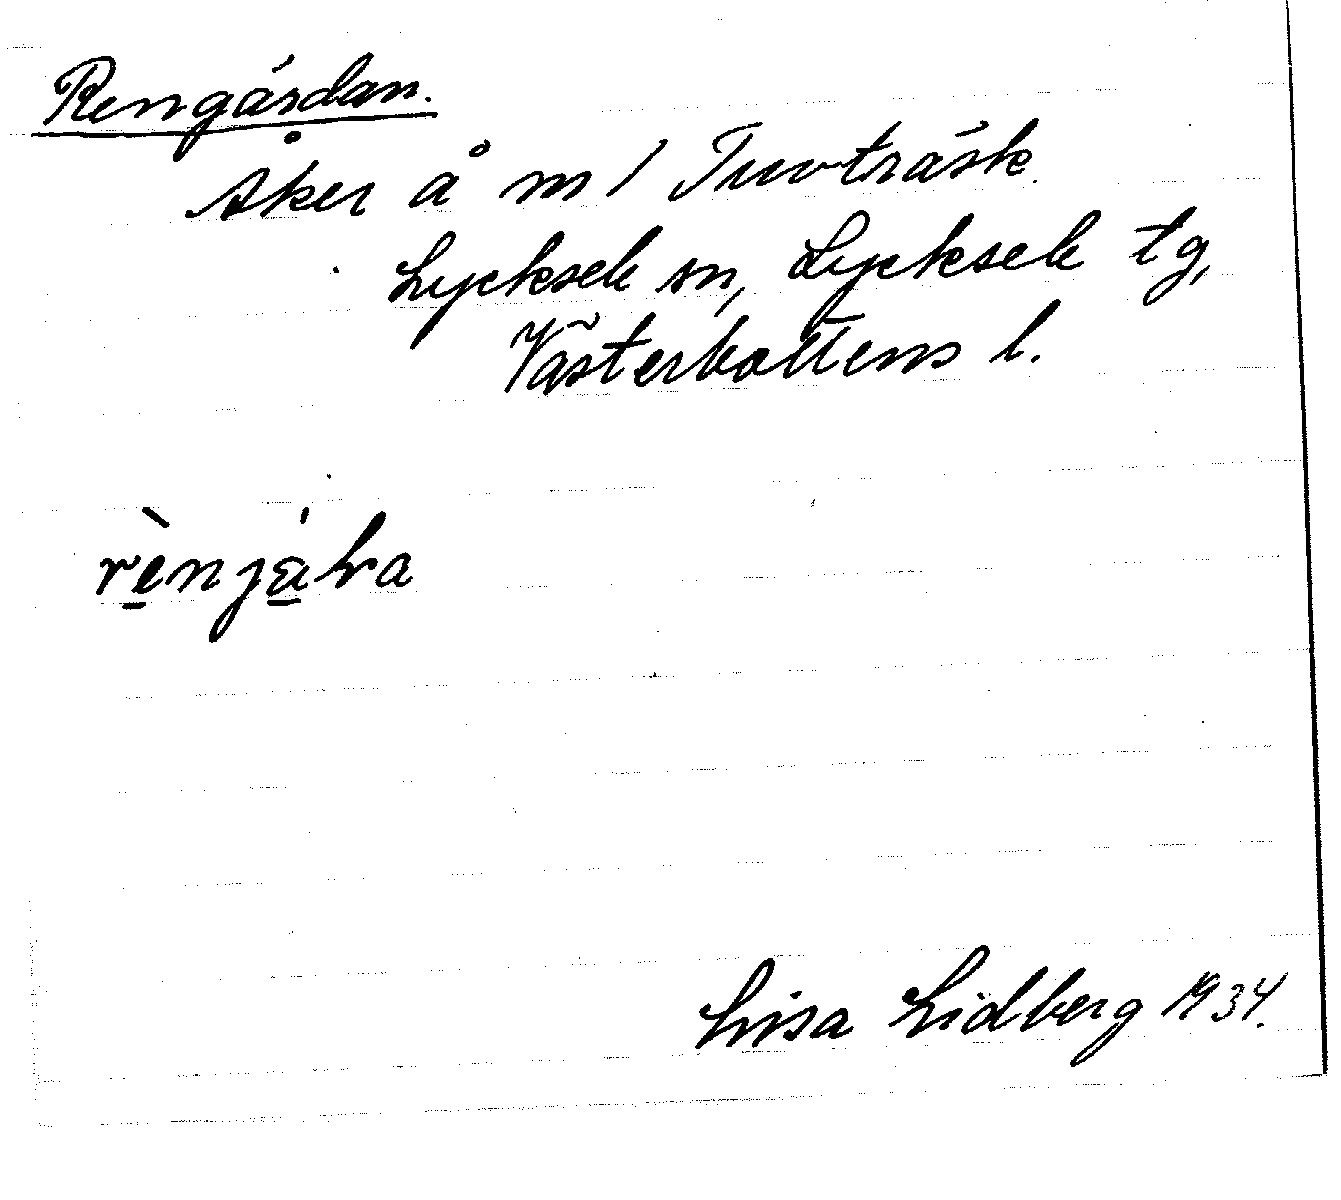 Rengärdan.
Åker å m / Tuvträsk.
Lycksele sn, Lycksele tg,
Västerbottens l.
Lisa Lidberg 1934.